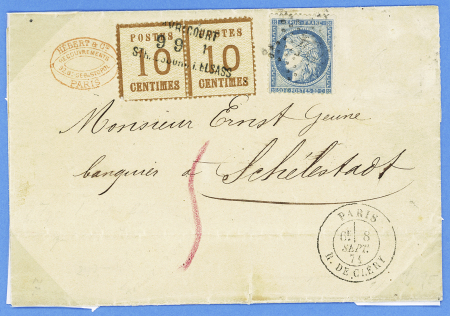 HEBERT & Cie
PARIS
POSTES
10
CENTIMES
POSTES
10
CENTIMES
9 9
I. ELSASS
Monsieur Ernst Jeune
banquier à Schélestadt
PARIS
8
SEPT.
71
R. DE CLERY